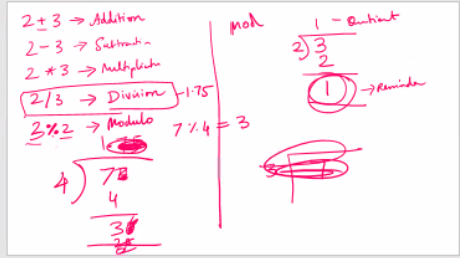 2 + 3 → Addition
2 - 3 → Subtraction
2 * 3 → Multiplicate
2/3 → Division -1.75
3%2 → Modulo
1.
4) 7
4
3
7 % 4 = 3
mod
1 - Quotient
2) 3
2
1 → Reminder